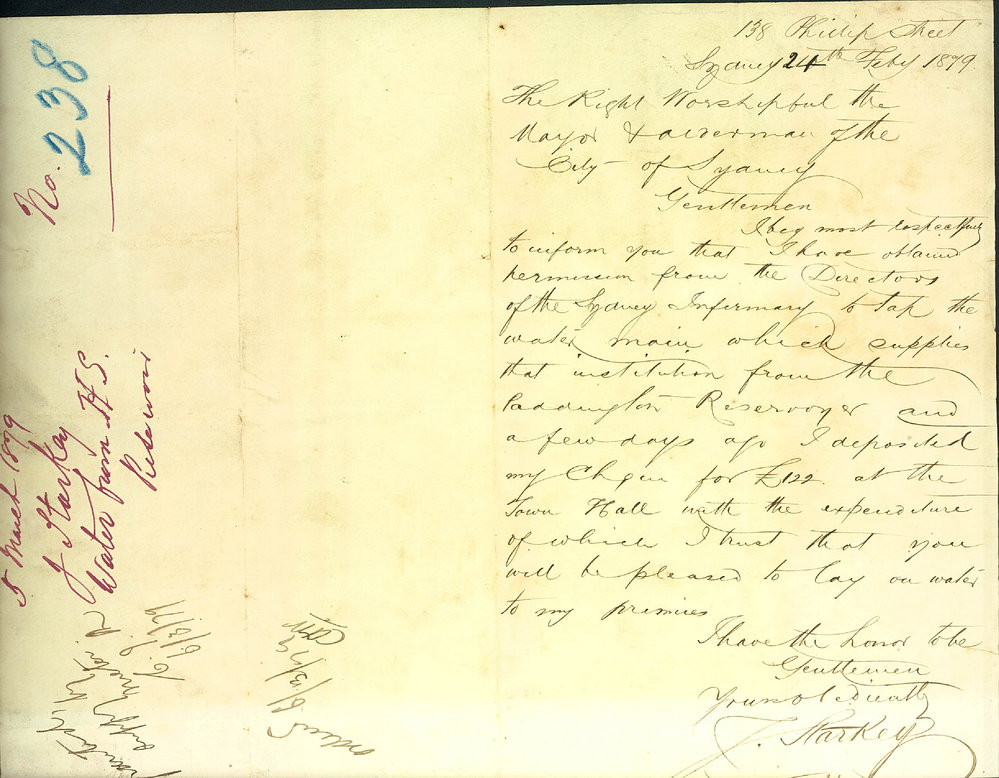 138 Phillip Street
Sydney 24th Feby 1879
The Right Worshipful the
Mayor & alderman of the
City of Sydney
Gentlemen
I beg most respectfully
to inform you that I have obtained
permission from the Directors
of the Sydney Infirmary to tap the
water main which supplies
that institution from the
Paddington Reservoyer and
a few days ago I deposited
my Cheque for £122 at the
Town Hall with the expenditure
of which I trust that you
will be pleased to lay on water
to my premises
I have the honor to be
Gentlemen
Yours obediently
J. Starkey
No. 238
5 March 1879
J Starkey
Water from H S.
Reservoir
6/3/79
6/3/79